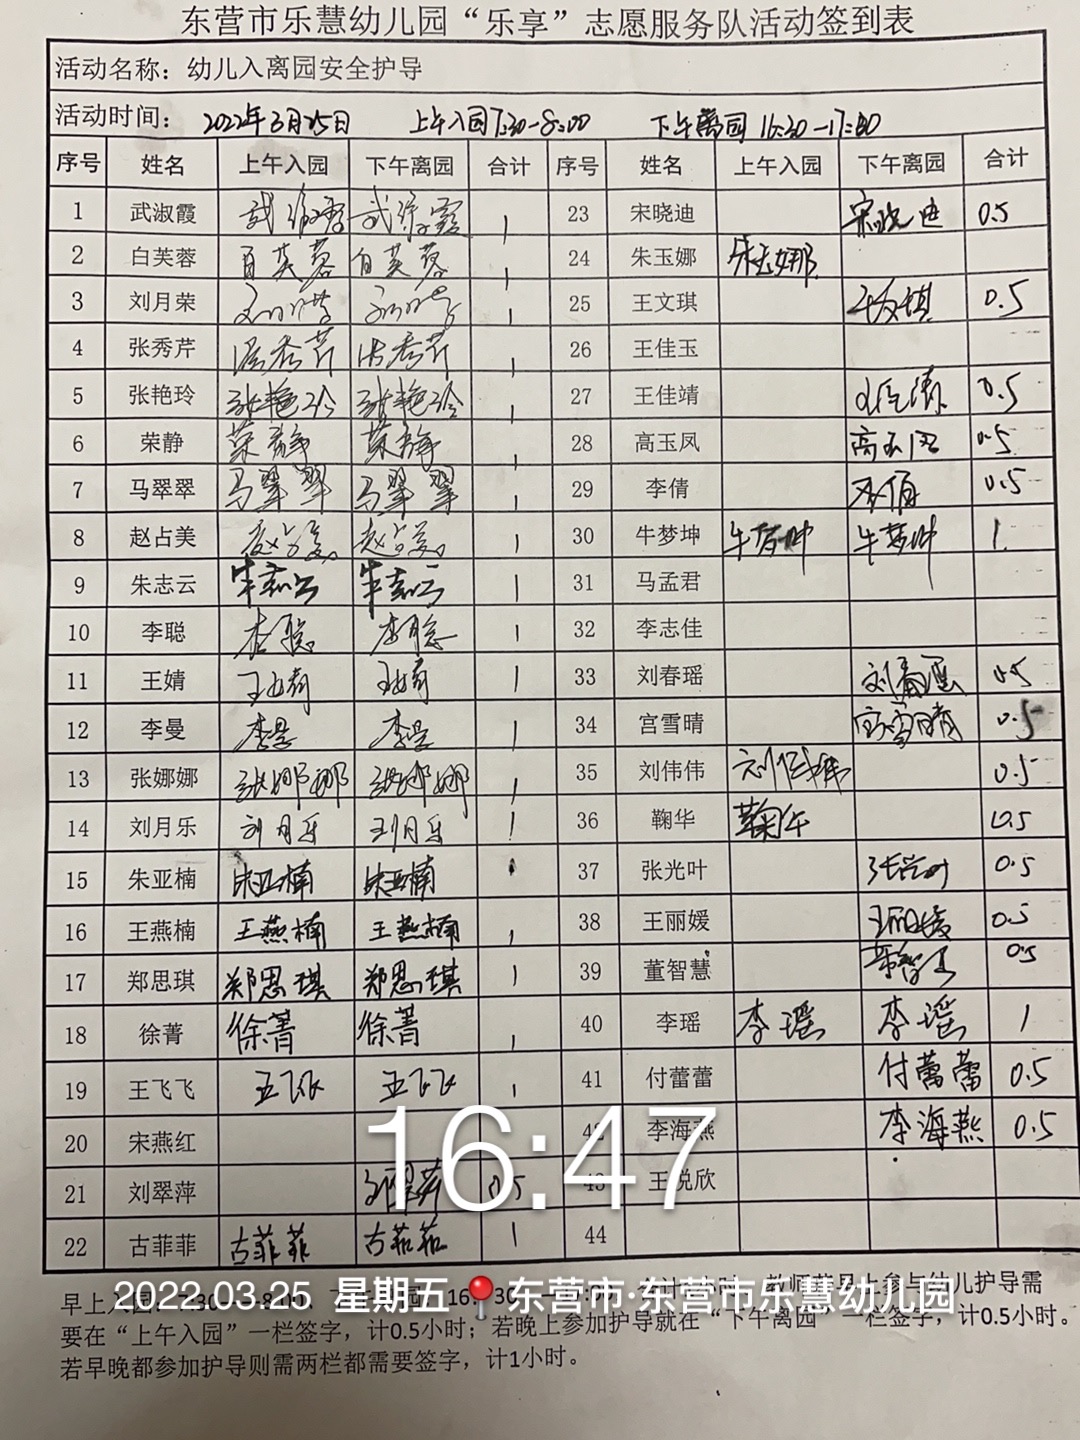 东营市乐慧幼儿园“乐享”志愿服务队活动签到表
活动名称：幼儿入离园安全护导
活动时间： 2022年3月25日 上午入园7:30-8:00 下午离园16:30-17:00
序号 姓名 上午入园 下午离园 合计 序号 姓名 上午入园 下午离园 合计
1 武淑霞 武淑霞 武淑霞 1 23 宋晓迪 宋晓迪 0.5
2 白芙蓉 白芙蓉 白芙蓉 1 24 朱玉娜 朱玉娜
3 刘月荣 刘月荣 刘月荣 1 25 王文琪 王文琪 0.5
4 张秀芹 张秀芹 张秀芹 1 26 王佳玉
5 张艳玲 张艳玲 张艳玲 1 27 王佳靖 0.5
6 荣静 荣静 荣静 1 28 高玉凤 高玉凤 0.5
7 马翠翠 马翠翠 马翠翠 1 29 李倩 李倩 0.5
8 赵占美 赵占美 赵占美 1 30 牛梦坤 牛梦坤 牛梦坤 1
9 朱志云 朱志云 朱志云 1 31 马孟君
10 李聪 李聪 李聪 1 32 李志佳
11 王婧 王婧 王婧 1 33 刘春瑶 刘春瑶 0.5
12 李曼 李曼 李曼 1 34 宫雪晴 宫雪晴 0.5
13 张娜娜 张娜娜 张娜娜 1 35 刘伟伟 刘伟伟 0.5
14 刘月乐 刘月乐 刘月乐 1 36 鞠华 鞠华 0.5
15 朱亚楠 朱亚楠 朱亚楠 37 张光叶 张光叶 0.5
16 王燕楠 王燕楠 王燕楠 1 38 王丽媛 王丽媛 0.5
17 郑思琪 郑思琪 郑思琪 1 39 董智慧 0.5
18 徐菁 徐菁 徐菁 1 40 李瑶 李瑶 李瑶 1
19 王飞飞 王飞飞 王飞飞 1 41 付蕾蕾 付蕾蕾 0.5
20 宋燕红 42 李海燕 李海燕 0.5
16:47
21 刘翠萍 刘翠萍 0.5 43 王悦欣
22 古菲菲 古菲菲 古菲菲 1 44
2022.03.25 星期五 东营市·东营市乐慧幼儿园
早上入园 教师若早上参与幼儿护导需
要在“上午入园”一栏签字，计0.5小时；若晚上参加护导就在“下午离园”一栏签字，计0.5小时。
若早晚都参加护导则需两栏都需要签字，计1小时。